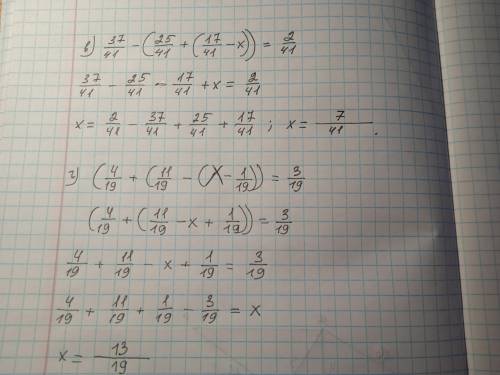 в) 37/41 − (25/41 + (17/41 − x)) = 2/41
37/41 − 25/41 − 17/41 + x = 2/41
x = 2/41 − 37/41 + 25/41 + 17/41 ; x = 7/41 .
г) (4/19 + (11/19 − (x − 1/19)) = 3/19
(4/19 + (11/19 − x + 1/19)) = 3/19
4/19 + 11/19 − x + 1/19 = 3/19
4/19 + 11/19 + 1/19 − 3/19 = x
x = 13/19